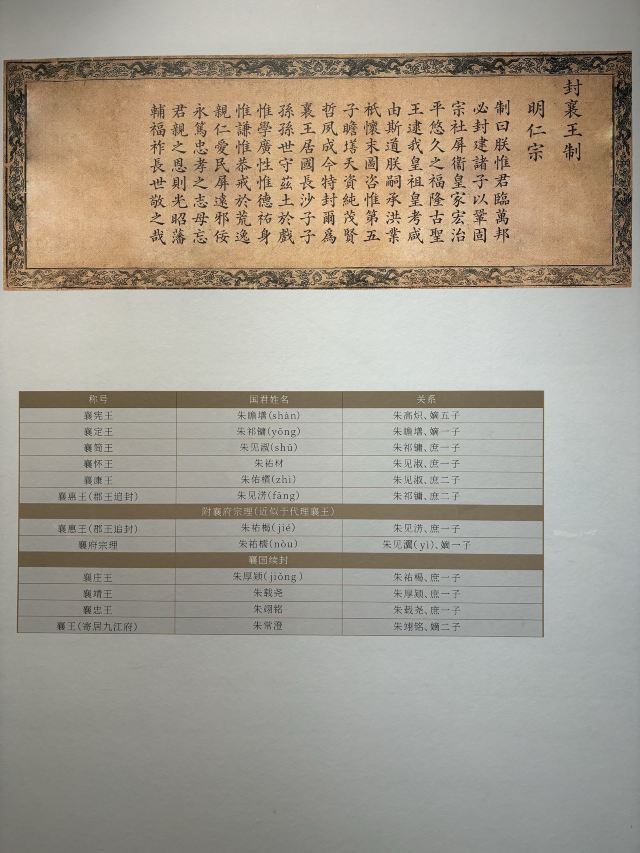 封襄王制
明仁宗
制曰朕惟君臨萬邦
必封建諸子以鞏固
宗社屏衛皇家宏治
平悠久之福隆古聖
王逮我皇祖皇考咸
由斯道朕嗣承洪業
祇懷末圖咨惟第五
子瞻墡天資純茂賢
哲夙成今特封爾為
襄王居國長沙子子
孫孫世守茲土於戲
惟學廣性惟德祐身
惟謙惟恭戒於荒逸
親仁愛民屏遠邪佞
永篤忠孝之志毋忘
君親之恩則光昭藩
輔福祚長世敬之哉
称号 国君姓名 关系
襄宪王 朱瞻墡(shàn) 朱高炽、嫡五子
襄定王 朱祁镛(yōng) 朱瞻墡、嫡一子
襄简王 朱见淑(shū) 朱祁镛、庶一子
襄怀王 朱祐材 朱见淑、庶一子
襄康王 朱佑櫍(zhì) 朱见淑、庶二子
襄惠王(郡王追封) 朱见淓(fāng) 朱祁镛、庶二子
附襄府宗理(近似于代理襄王)
襄惠王(郡王追封) 朱祐楬(jié) 朱见淓、庶一子
襄府宗理 朱祐檽(nòu) 朱见瀷(yì)、嫡一子
襄国续封
襄庄王 朱厚颎(jiǒng) 朱祐楬、庶一子
襄靖王 朱载尧 朱厚颎、庶一子
襄忠王 朱翊铭 朱载尧、庶一子
襄王(寄居九江府) 朱常澄 朱翊铭、嫡二子